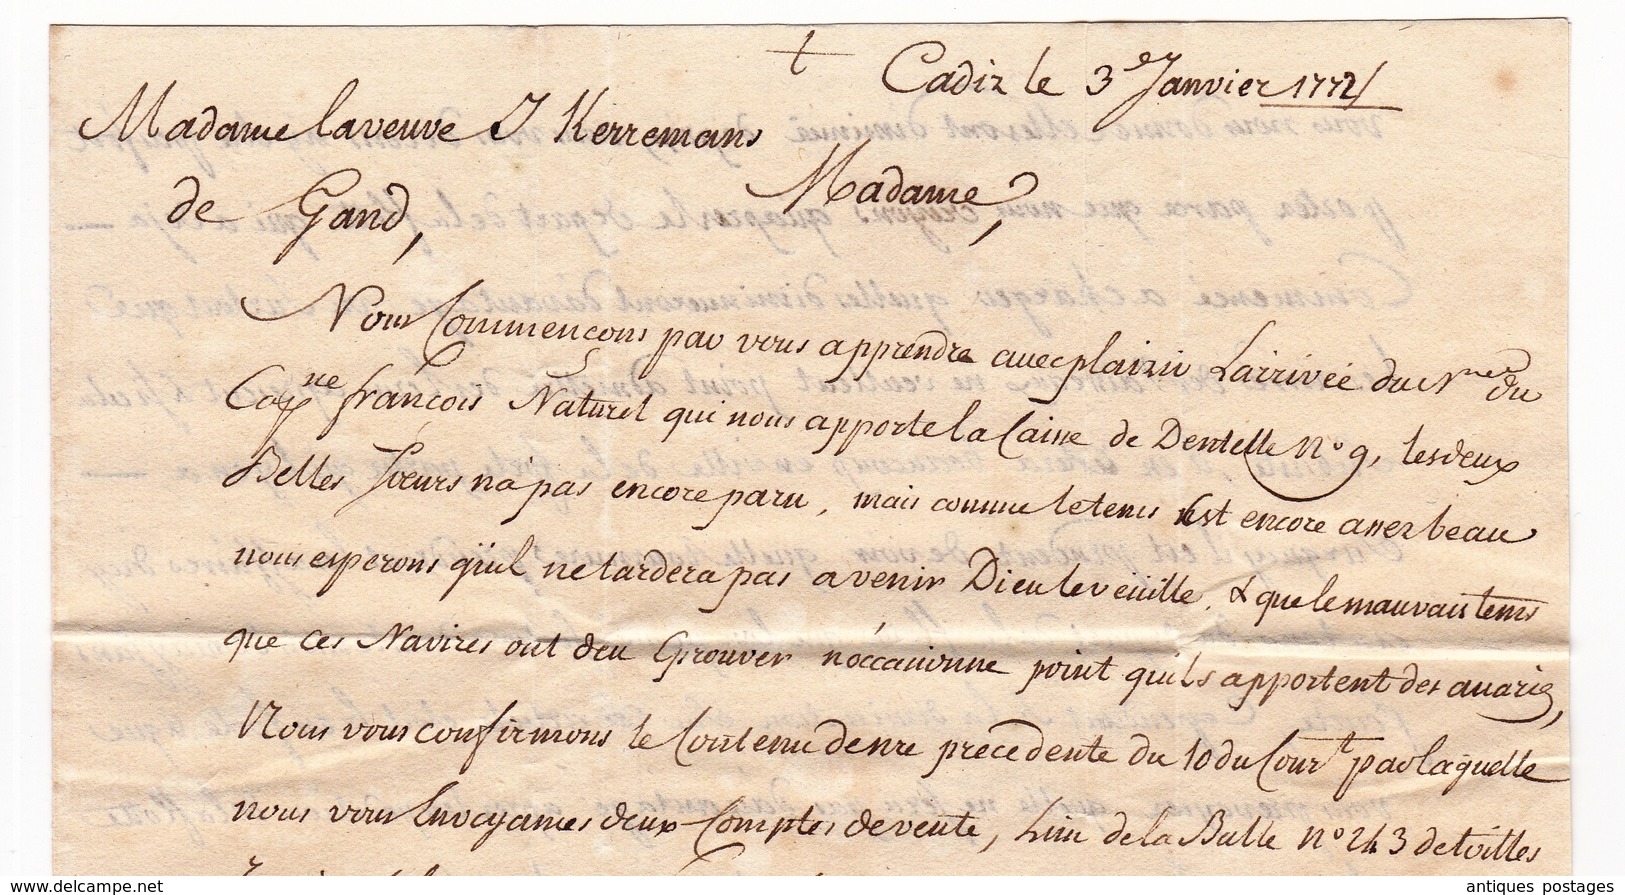 t Cadiz le 3e Janvier 1772/
Madame la veuve J Kerremans
de Gand, Madame,
Nous Commencons par vous apprendre avec plaizir Larrivée du Nre du
Capne françois Naturel qui nous apporte la Caisse de Dentelle No 9, les deux
Belles Soeurs n'a pas encore paru, mais comme le tems est encore assez beau
nous esperons qu'il ne tardera pas a venir Dieu le veüille, & que le mauvais tems
que ces Navires ont deu Eprouver n'occasionne point qu'ils apportent des avaries,
Nous vous confirmons le Contenu de nre precedente du 10 du Court par laquelle
nous vous Envoyames deux Comptes de vente, Lun de la Balle No 243 de toilles
www.delcampe.net antiques postages